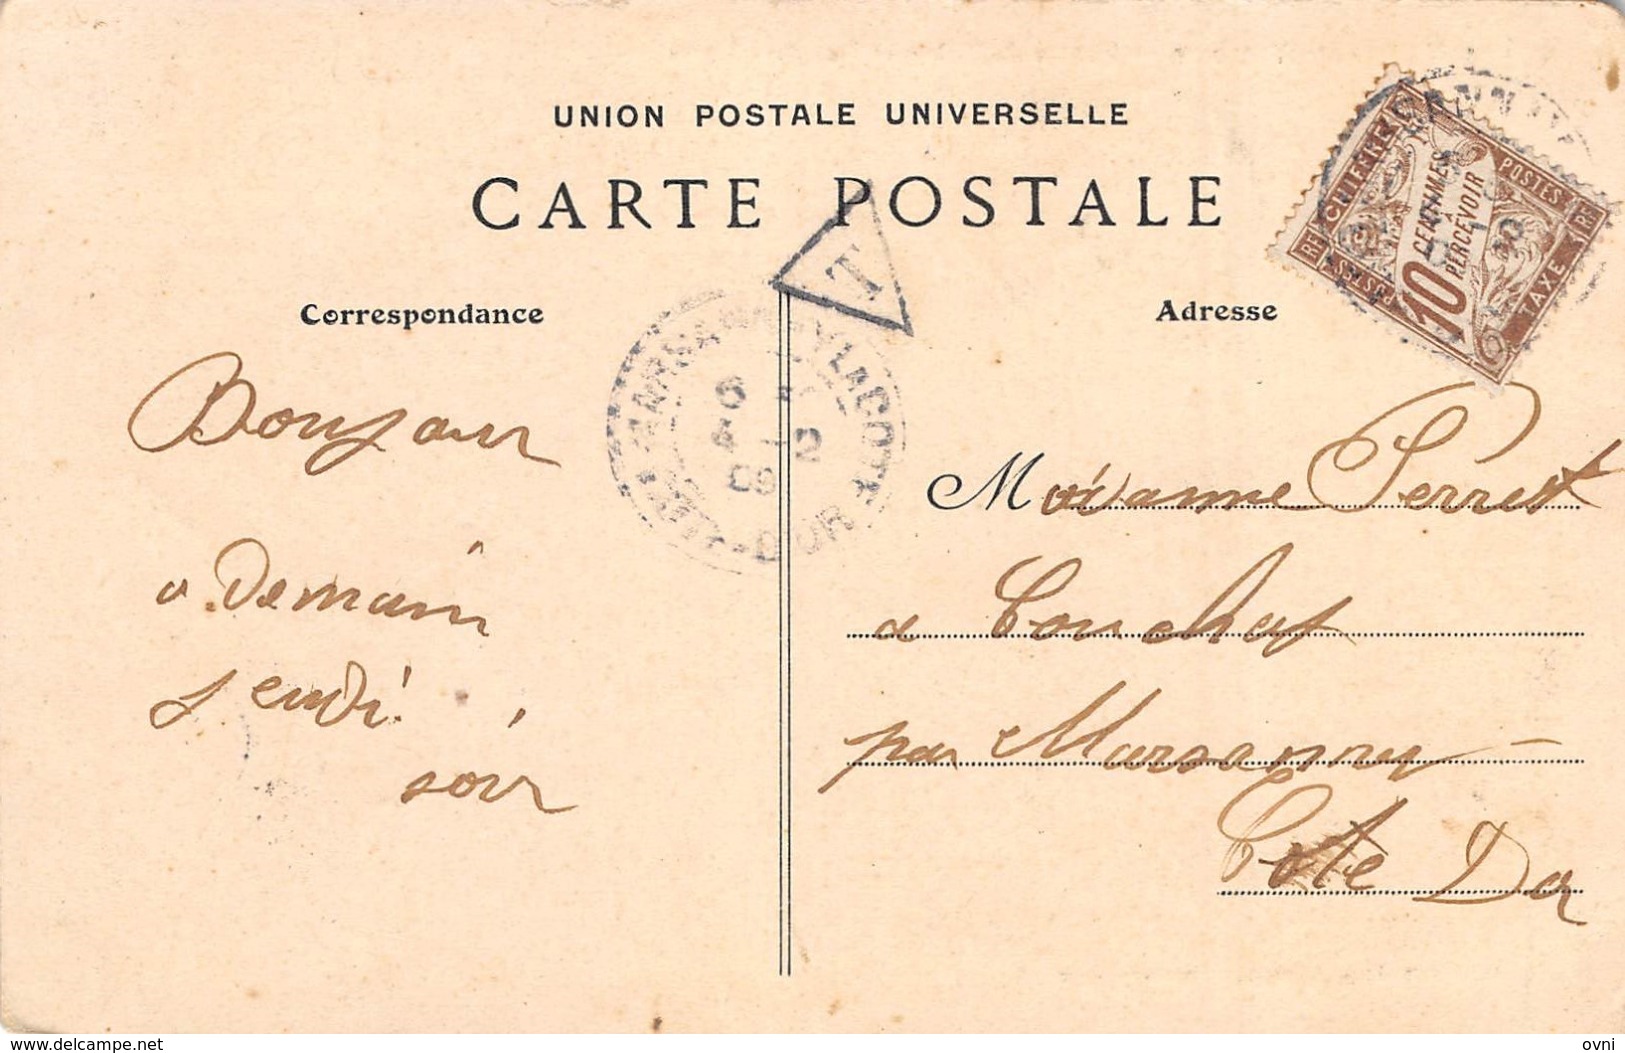 UNION POSTALE UNIVERSELLE
CARTE POSTALE
T
CHIFFRE
POSTES
10
CENTIMES
À
PERCEVOIR
TAXE
POSTES
RF
RF
Correspondance
Adresse
Bonjour
a Demain
jeudi
soir
6
2
09
D'OR
Madame Perret
a Couchey
par Marsannay
Cote Dor
www.delcampe.net
ovni